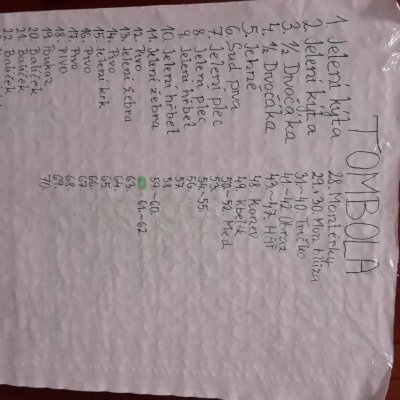 TOMBOLA
1. Jelení kýta
2. Jelení kýta
3. 1/2 Divočáka
4. 1/2 Divočáka
5. Jehně
6. Sud piva
7. Jelení plec
8. Jelení plec
9. Jelení hřbet
10. Jelení hřbet
11. Jelení žebra
12. Pivo
13. Jelení žebra
14. Pivo
15. Jelení krk
16. Pivo
17. Pivo
18. Pivo
19. Poukaz
20. Balíček
21. Balíček
22. Balíček
28. Montérky
29.+30.
31-40. Tričko
41-42. Obraz
43-47.
48. Konev
49. Kbelík
50-52. Med
53.
54-55.
56.
57.
58.
59.-60.
61.-62.
63.
64.
65.
66.
67.
68.
69.
70.